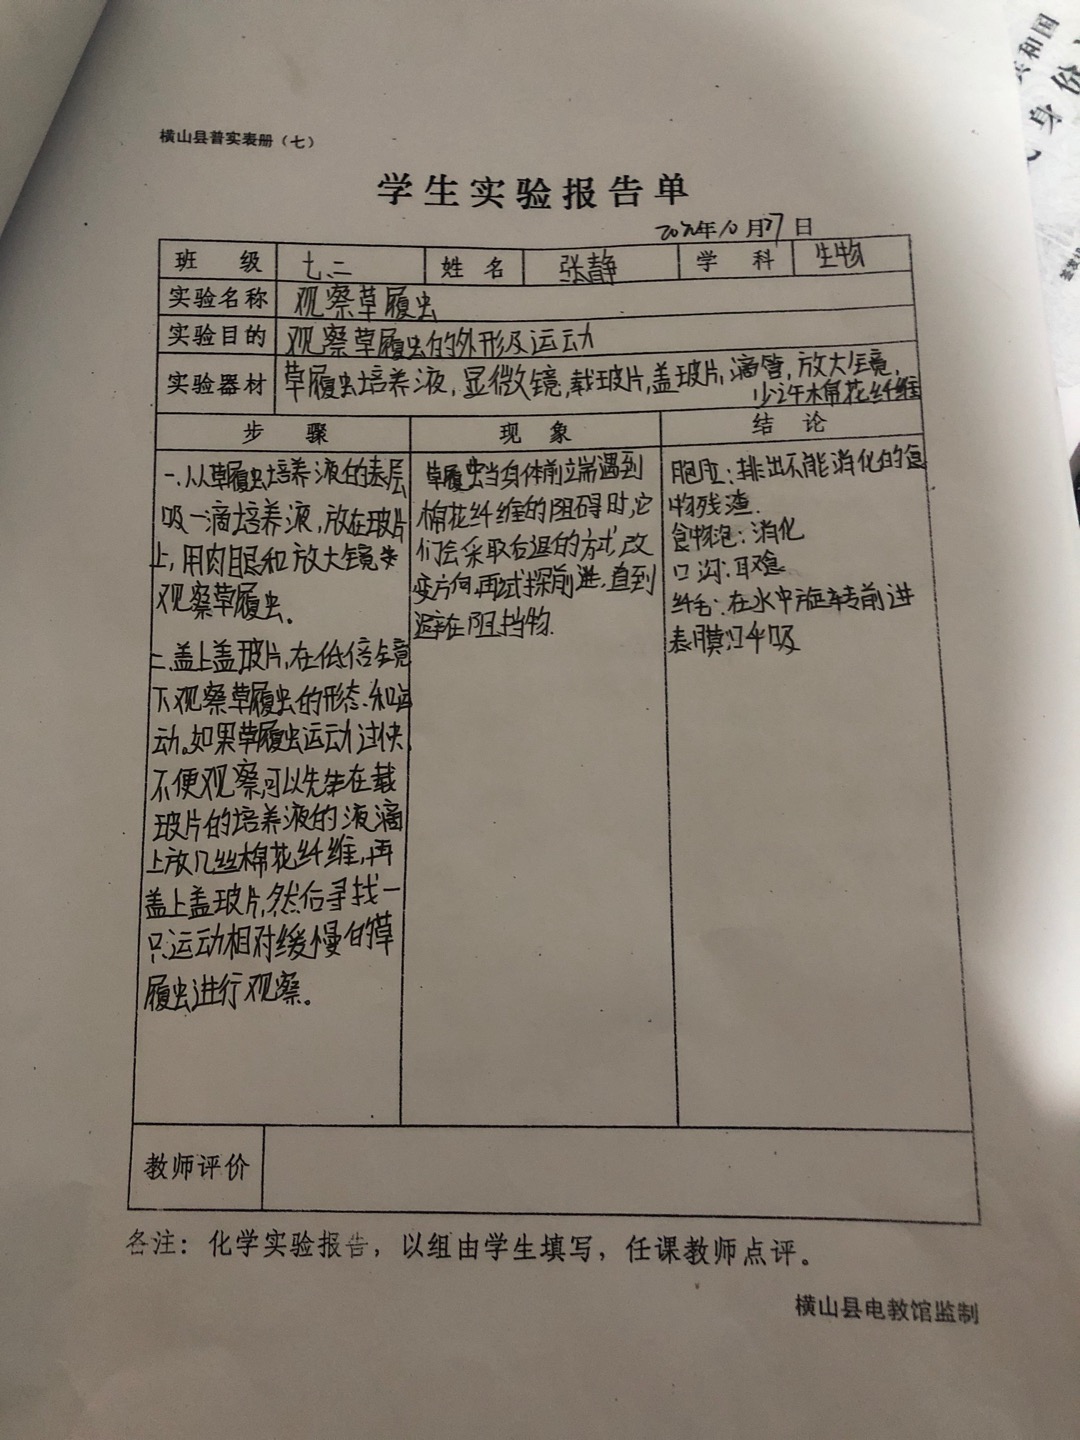 共和国
身份
横山县普实表册（七）
学生实验报告单
年10月27日
班 级 七.二 姓 名 张静 学 科 生物
实验名称 观察草履虫
实验目的 观察草履虫的外形及运动
实验器材 草履虫培养液,显微镜,载玻片,盖玻片,滴管,放大镜,
少许棉花纤维
步 骤 现 象 结 论
一.从草履虫培养液的表层
吸一滴培养液,放在玻片
上,用肉眼和放大镜
观察草履虫。
二.盖上盖玻片,在低倍镜
下观察草履虫的形态.和运
动。如果草履虫运动过快,
不便观察,可以先在载
玻片的培养液的液滴
上放几丝棉花纤维,再
盖上盖玻片,然后寻找一
只运动相对缓慢的草
履虫进行观察。
草履虫当身体前端遇到
棉花纤维的阻碍时,它
们会采取后退的方式,改
变方向,再试探前进.直到
避在阻挡物.
胞肛:排出不能消化的食
物残渣.
食物泡:消化
口沟:取食
纤毛:在水中旋转前进
表膜:呼吸
教师评价
各注：化学实验报告，以组由学生填写，任课教师点评。
横山县电教馆监制